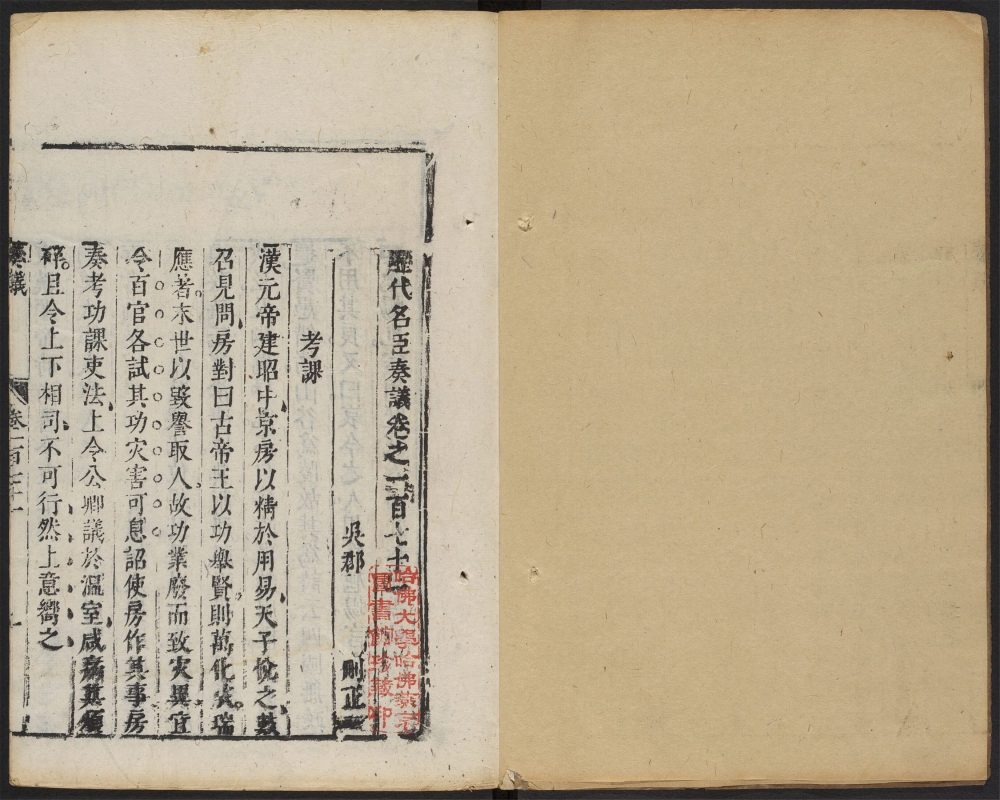 歷代名臣奏議卷之一百七十
吳郡 刪正
考課
漢元帝建昭中京房以精於用易天子悅之數
召見問房對曰古帝王以功舉賢則萬化成瑞
應著末世以毀譽取人故功業廢而致灾異宜
令百官各試其功灾害可息詔使房作其事房
奏考功課吏法上令公卿議於溫室咸
碎且令上下相司不可行然上意嚮之
奏議
卷一百七十
一
哈佛大學哈佛燕京
圖書館珍藏印